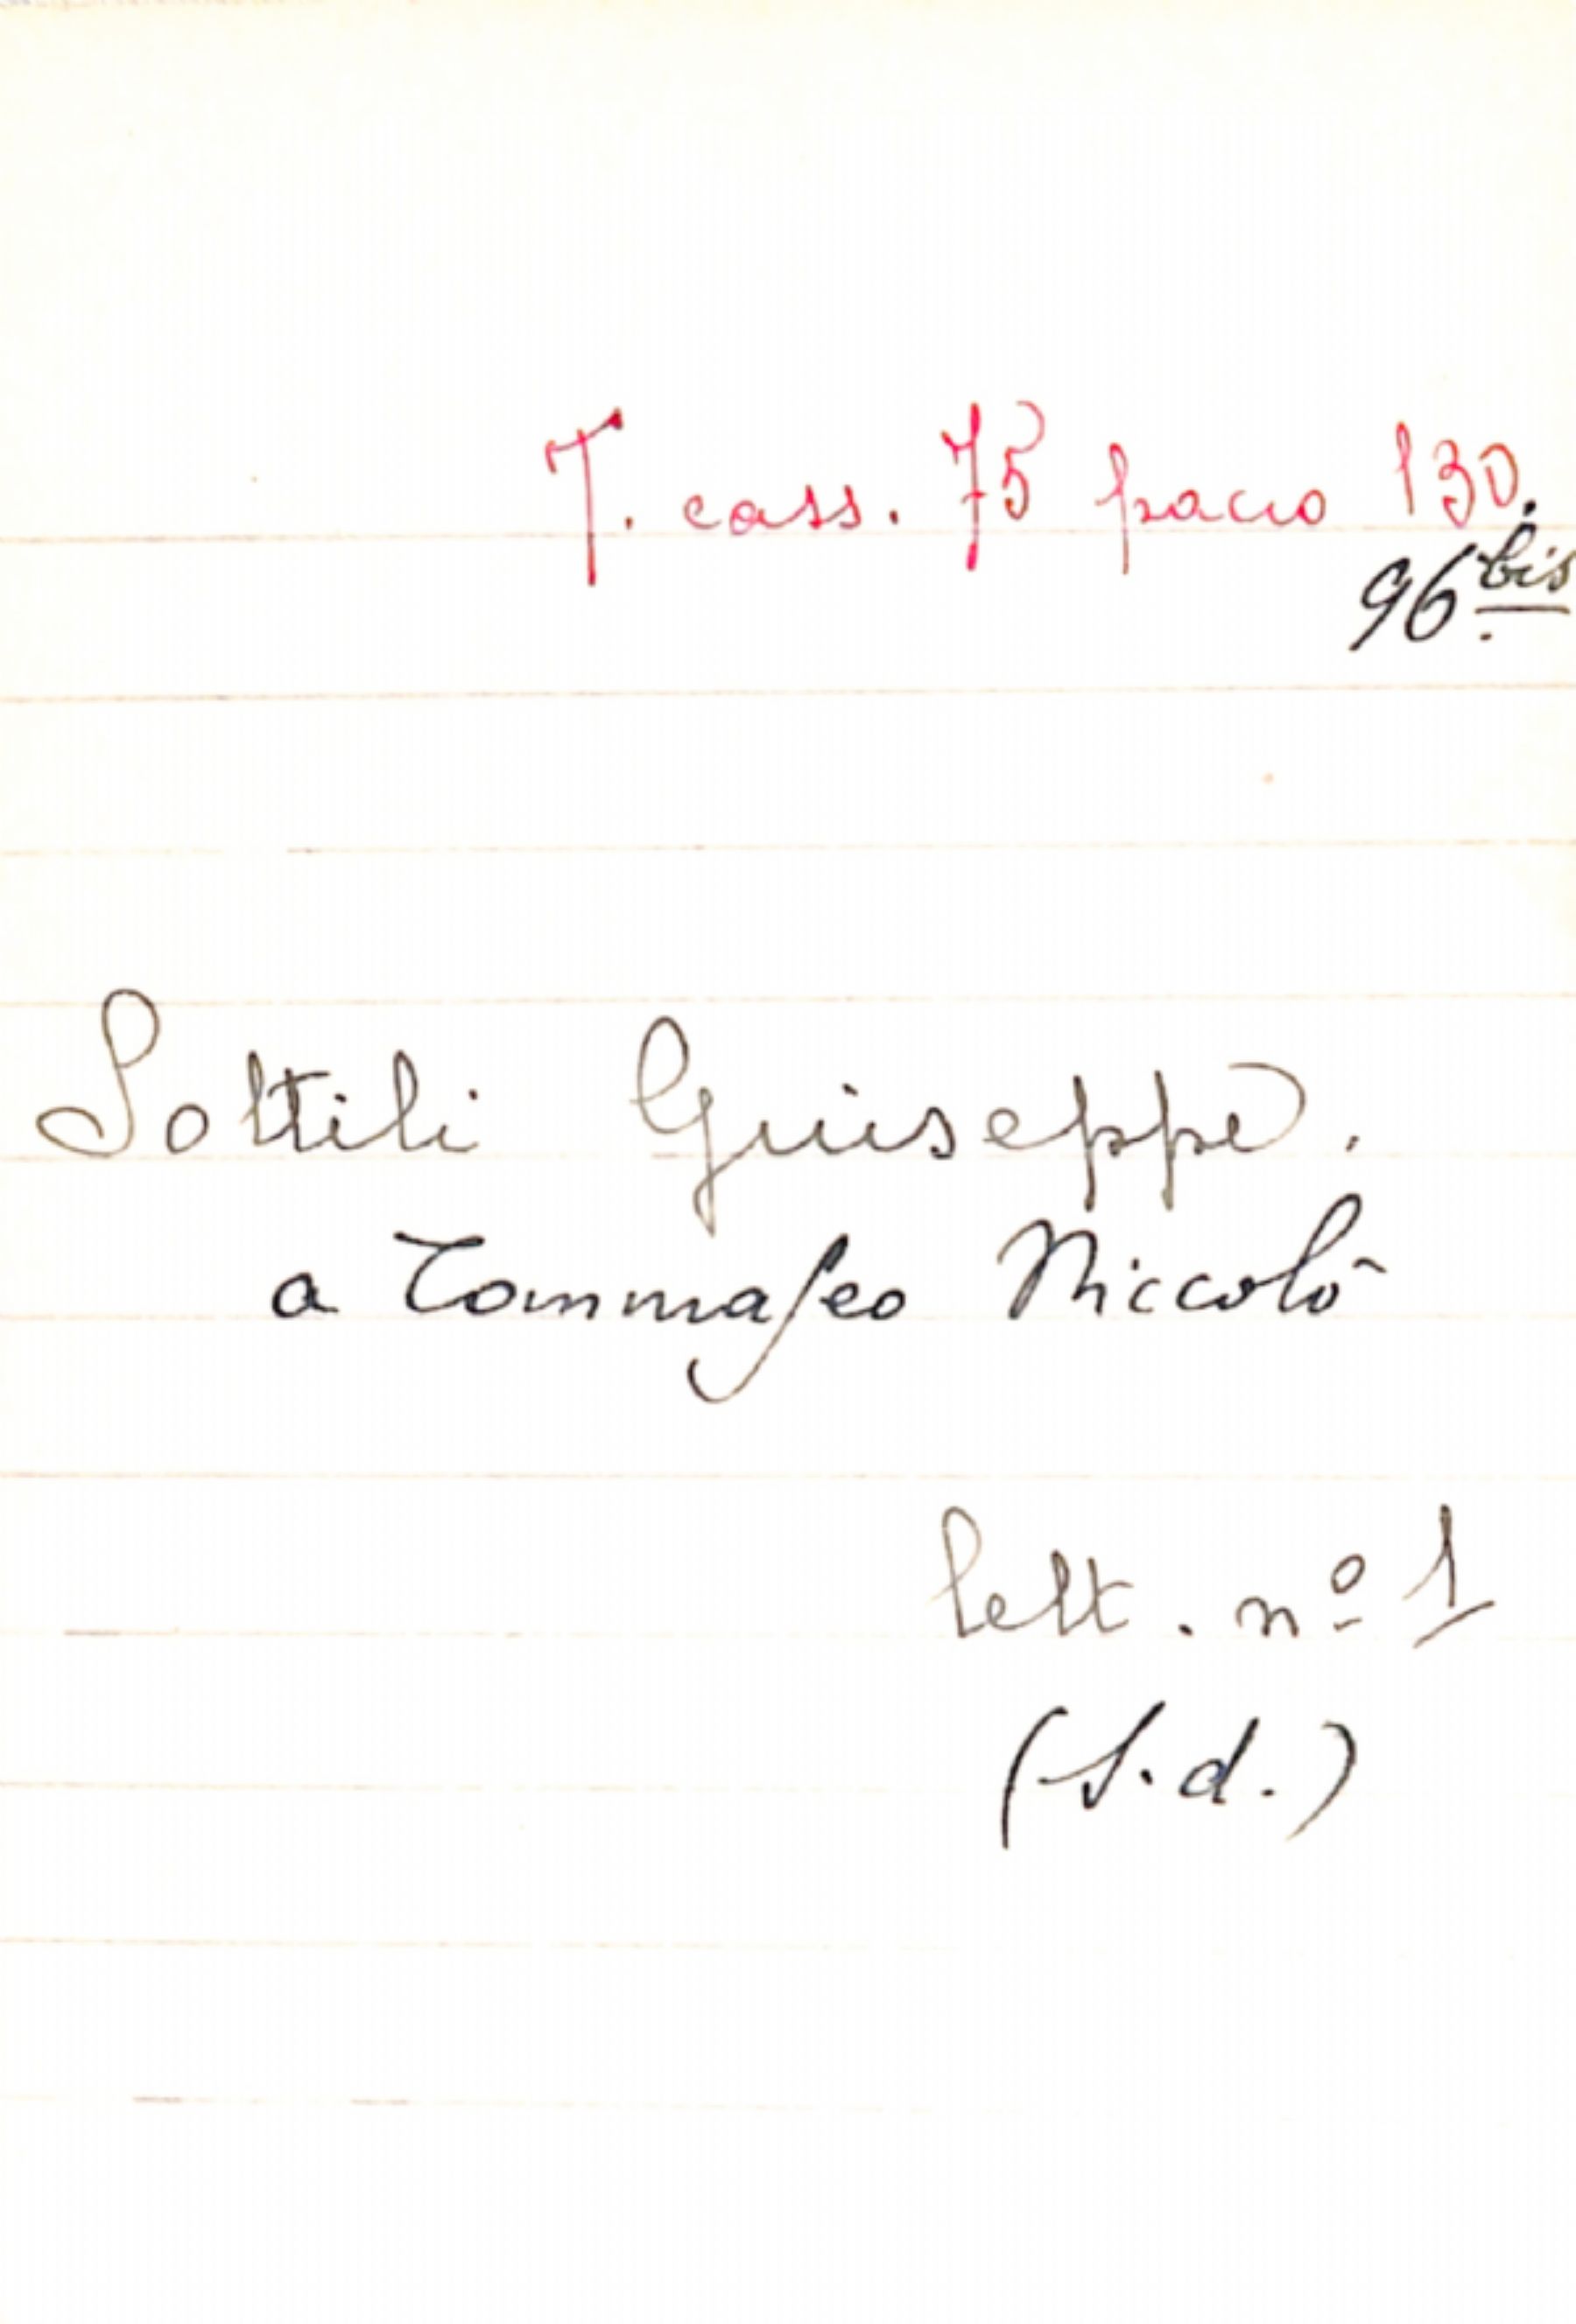 T. cass. 75 pacco 130.
96 bis
Sottili Giuseppe.
a Tommaseo Niccolò
lett. nº 1
(S.d.)